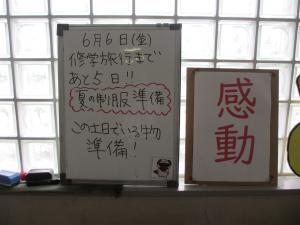 6月6日(金)
修学旅行まで
あと5日!!
夏の制服準備
この土日でいる物
準備!
感動